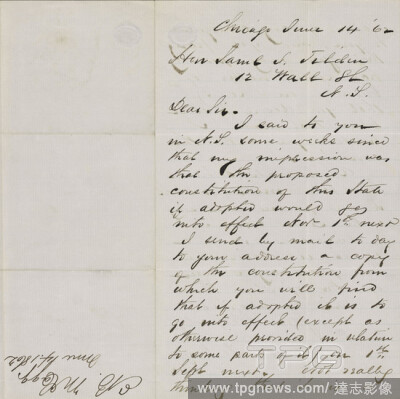 Chicago June 14 '62
Hon Saml. J. Tilden
12 Wall St
N.Y.
Dear Sir.
I said to you
in N.Y. some weeks since
that my impression was
that the proposed
constitution of this State
if adopted would go
into effect Nov 1st next
I send by mail to day
to your address a copy
of the constitution from
which you will find
that if adopted it is to
go into effect (except as
otherwise provided in relation
to some parts of it) on 1st
Sept next. Not really
June 14 1862
www.tpgnews.com | 達志影像